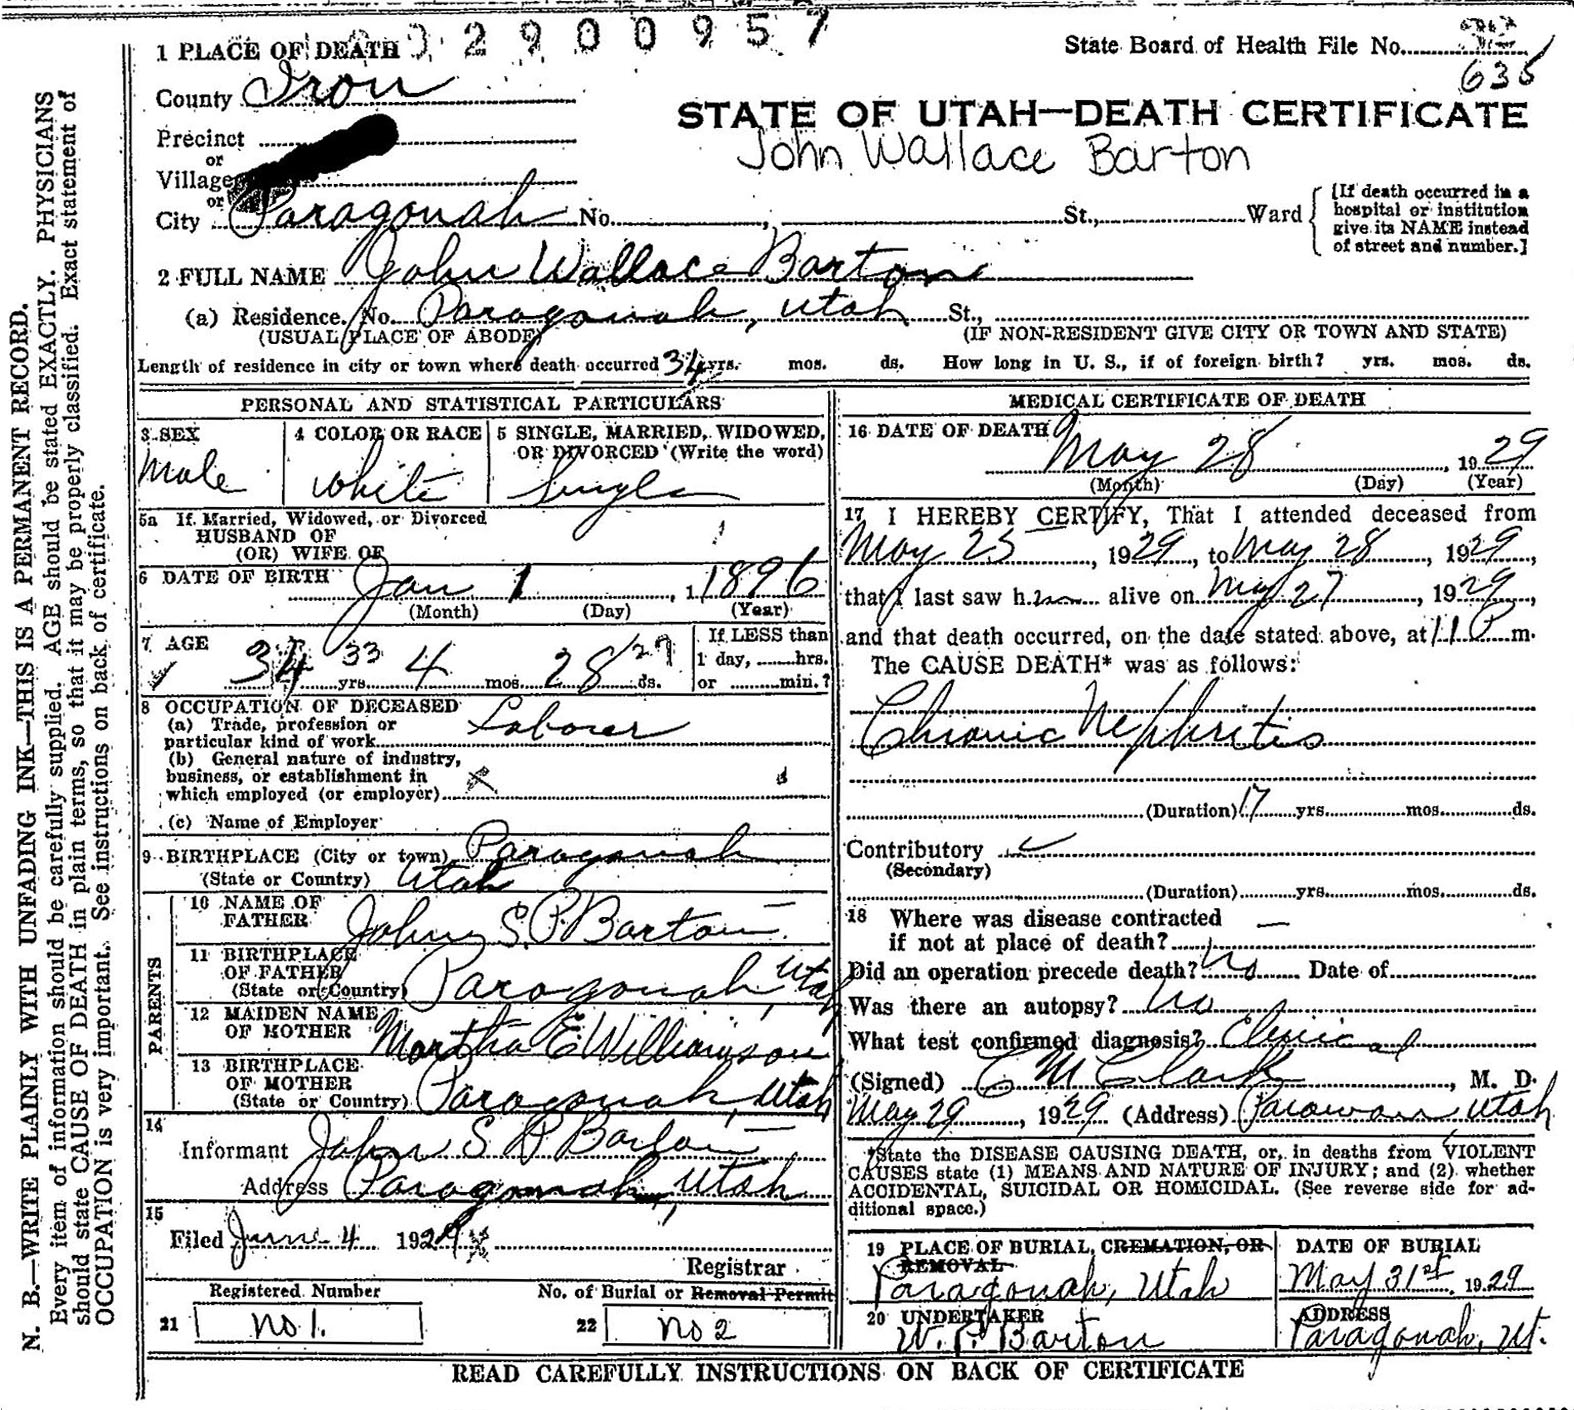 2900957
1 PLACE OF DEATH
State Board of Health File No.
635
County Iron
STATE OF UTAH—DEATH CERTIFICATE
Precinct
John Wallace Barton
or
Village
or
City Paragonah No. St., Ward
[If death occurred in a
hospital or institution
give its NAME instead
of street and number.]
2 FULL NAME John Wallace Barton
(a) Residence. No. Paragonah, Utah St.,
(USUAL PLACE OF ABODE) (IF NON-RESIDENT GIVE CITY OR TOWN AND STATE)
Length of residence in city or town where death occurred 34 yrs. mos. ds. How long in U. S., if of foreign birth? yrs. mos. ds.
PERSONAL AND STATISTICAL PARTICULARS
3 SEX 4 COLOR OR RACE 5 SINGLE, MARRIED, WIDOWED,
OR DIVORCED (Write the word)
Male White Single
5a If Married, Widowed, or Divorced
HUSBAND OF
(OR) WIFE OF
6 DATE OF BIRTH Jan 1, 1896
(Month) (Day) (Year)
7 AGE
34 33 yrs 4 mos 28 27 ds.
If LESS than
1 day, hrs.
or min.?
8 OCCUPATION OF DECEASED
(a) Trade, profession or
particular kind of work Laborer
(b) General nature of industry,
business, or establishment in
which employed (or employer) x
(c) Name of Employer
9 BIRTHPLACE (City or town) Paragonah
(State or Country) Utah
PARENTS
10 NAME OF
FATHER John S. P. Barton
11 BIRTHPLACE
OF FATHER
(State or Country) Paragonah, Utah
12 MAIDEN NAME
OF MOTHER Martha E Williamson
13 BIRTHPLACE
OF MOTHER
(State or Country) Paragonah, Utah
14
Informant John S P Barton
Address Paragonah, Utah
15
Filed June 4 1929
Registrar
Registered Number No. of Burial or Removal Permit
21 no 1. 22 no 2
MEDICAL CERTIFICATE OF DEATH
16 DATE OF DEATH
May 28, 1929
(Month) (Day) (Year)
17 I HEREBY CERTIFY, That I attended deceased from
May 25, 1929, to May 28, 1929,
that I last saw him alive on May 27, 1929,
and that death occurred, on the date stated above, at 11 P m.
The CAUSE DEATH* was as follows:
Chronic Nephritis
(Duration) 17 yrs. mos. ds.
Contributory
(Secondary)
(Duration) yrs. mos. ds.
18 Where was disease contracted
if not at place of death?
Did an operation precede death? No Date of
Was there an autopsy? No
What test confirmed diagnosis? Clinical
(Signed) C M Clark, M. D.
May 29, 1929 (Address) Parowan, Utah
*State the DISEASE CAUSING DEATH, or, in deaths from VIOLENT
CAUSES state (1) MEANS AND NATURE OF INJURY; and (2) whether
ACCIDENTAL, SUICIDAL OR HOMICIDAL. (See reverse side for ad-
ditional space.)
19 PLACE OF BURIAL, CREMATION, OR
REMOVAL
Paragonah, Utah
DATE OF BURIAL
May 31st, 1929
20 UNDERTAKER
W. P. Barton
ADDRESS
Paragonah, Ut.
READ CAREFULLY INSTRUCTIONS ON BACK OF CERTIFICATE
N. B.—WRITE PLAINLY WITH UNFADING INK—THIS IS A PERMANENT RECORD.
Every item of information should be carefully supplied. AGE should be stated EXACTLY. PHYSICIANS
should state CAUSE OF DEATH in plain terms, so that it may be properly classified. Exact statement of
OCCUPATION is very important. See instructions on back of certificate.